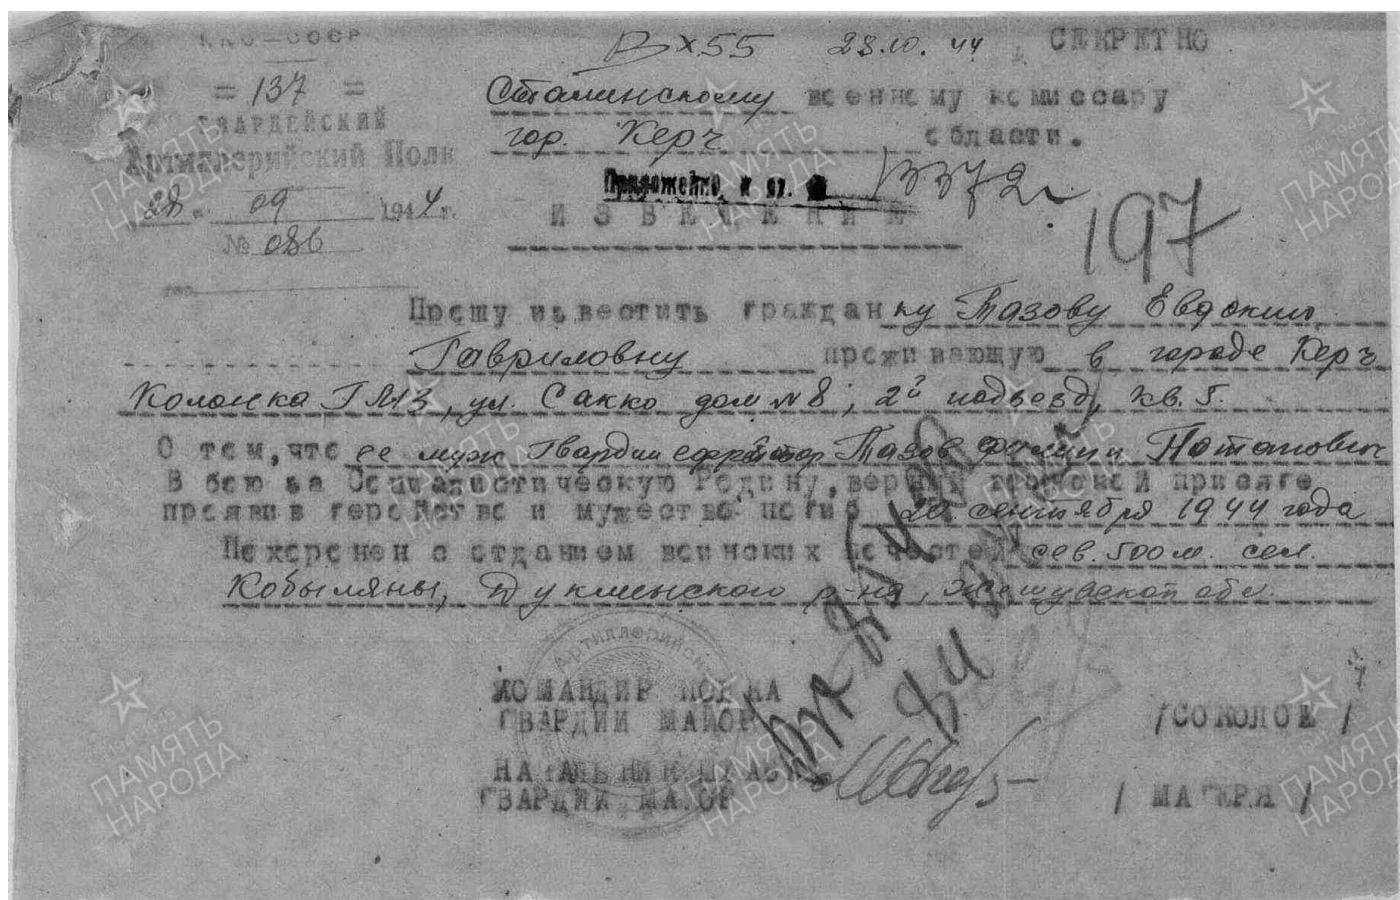 НКО-СССР
= 137 =
ГВАРДЕЙСКИЙ
Артиллерийский Полк
28 09 1944 г.
№ 086
Вх 55 28.10.44 СЕКРЕТНО
Сталинскому военному комиссару
гор. Керч области.
Приложение к вх. 13372
197
ИЗВЕЩЕНИЕ
Прошу известить гражданку Тазову Евдокию
Гавриловну проживающую в городе Керч
Колонка ГМЗ, ул. Сакко дом № 8; 2й подъезд, кв. 5.
О том, что ее муж Гвардии ефрейтор Тазов Филипп Потапович
В бою за Социалистическую Родину, верный воинской присяге
проявив геройство и мужество погиб 20 сентября 1944 года
Похоронен с отданием воинских почестей сев. 500 м. сел.
Кобыляны, Дуклинского р-на, Жешувской обл.
Артиллерийск
КОМАНДИР ПОЛКА
ГВАРДИИ МАЙОР /СОКОЛОВ/
НАЧАЛЬНИК ШТАБА
ГВАРДИИ МАЙОР /МАГЕРЯ/
ПАМЯТЬ НАРОДА